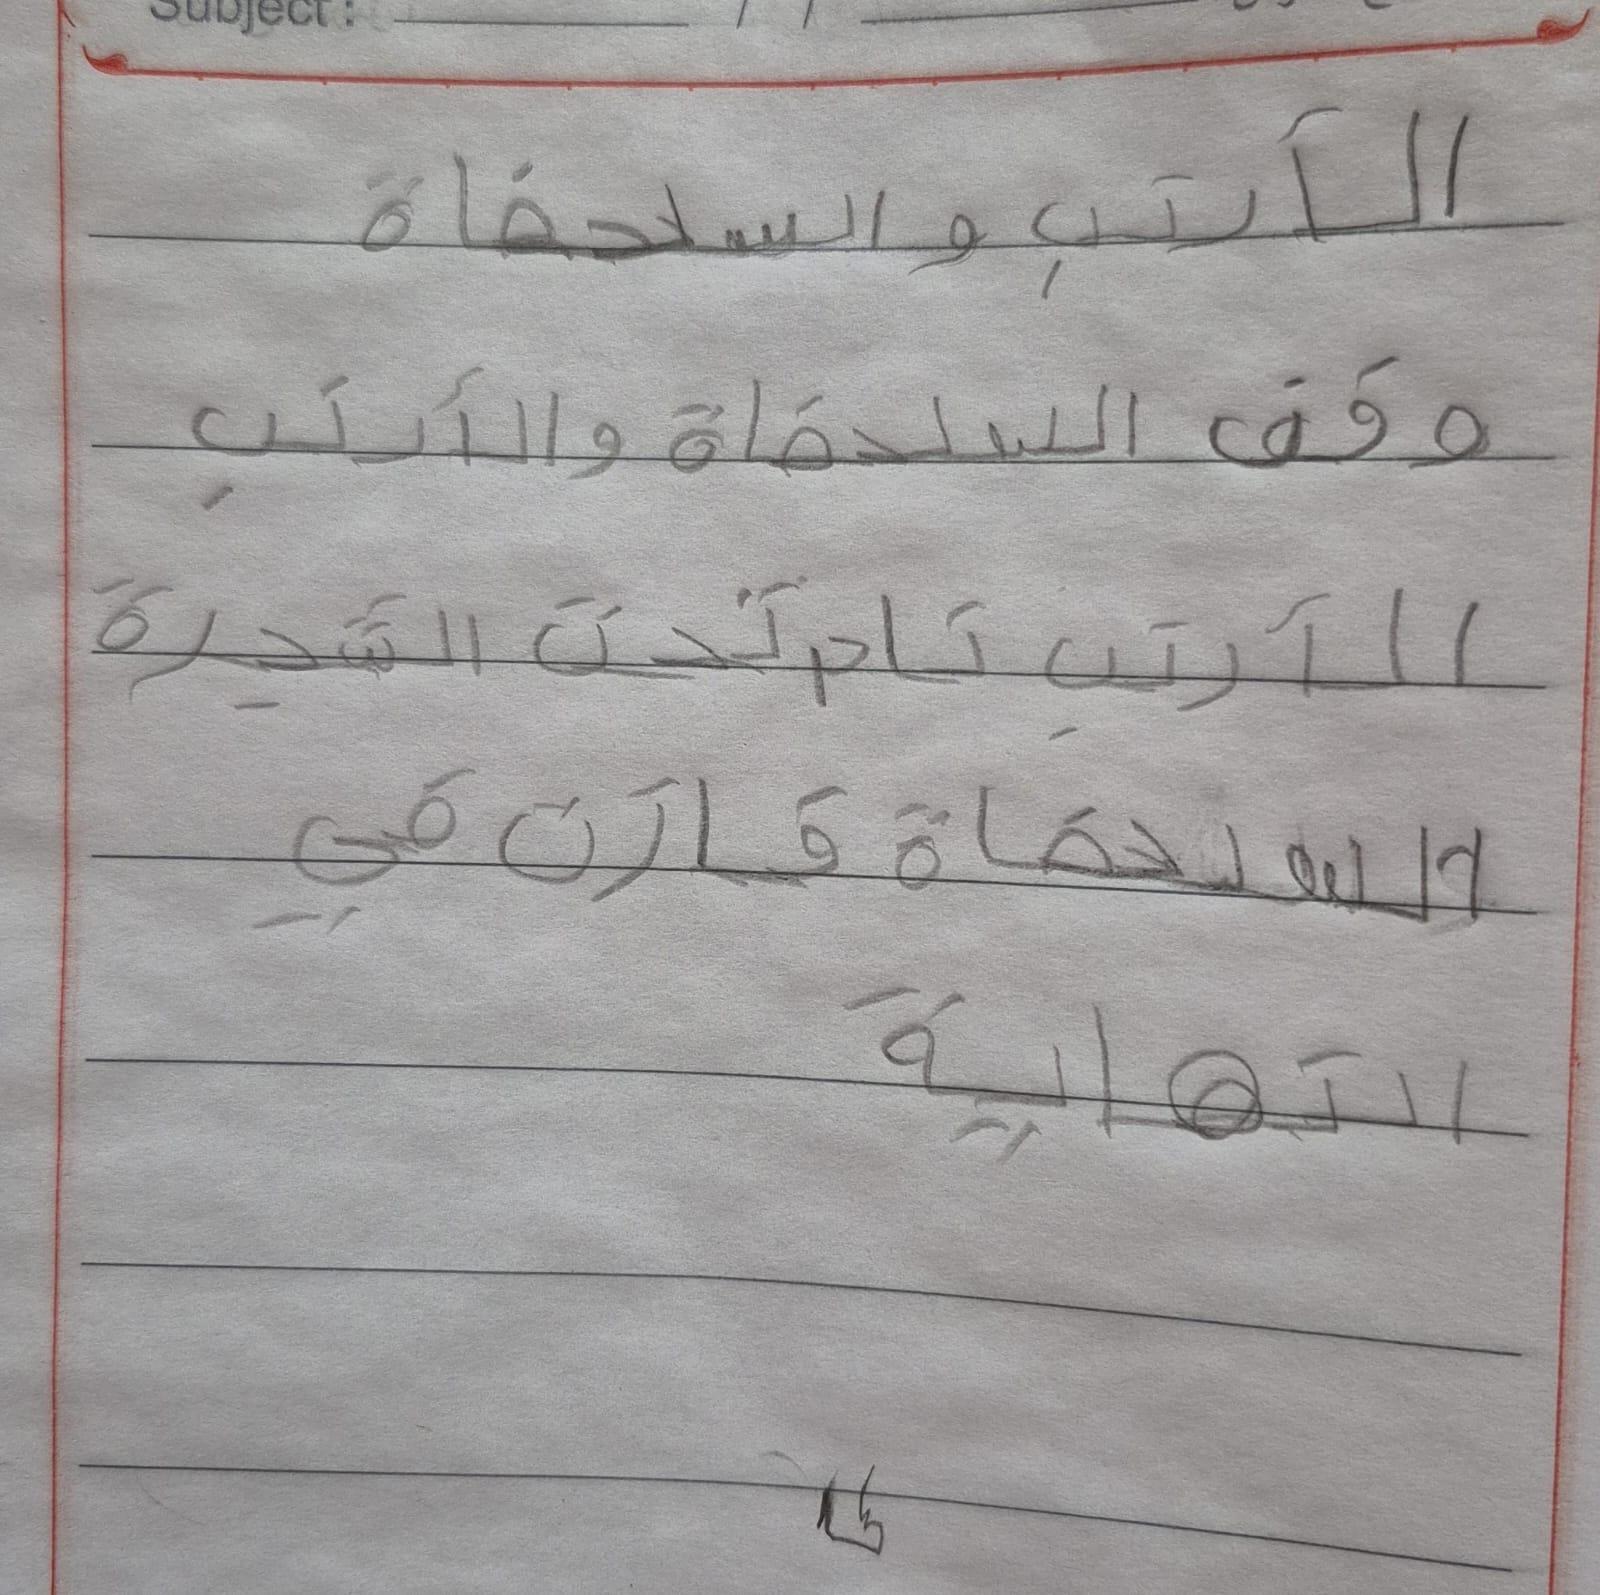 Subject : / /
الأرنب و السلحفاة
وقف السلحفاة والأرنب
الأرنب نام تحت الشجرة
السلحفاة فازت في
النهاية